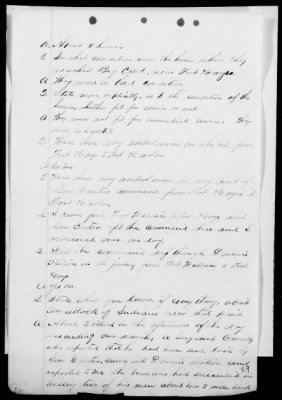 A. About 8 hours
Q. In what condition were the horses when they
reached Big Creek, near Fort Hays
A. They were in bad condition
Q. State more explicitly, as to the condition of the
horses, whether fit for service or not
A. They were not fit for immediate service. They
were
Q. Were there any ambulances on the trip from
Fort Hays to Fort Harker
A.
Q. Were there any ambulances in any part of
Gen Custer's command from Fort Hays to
Fort Harker
A. I came from Fort Wallace to Fort Hays and
Gen Custer left the command there and I
remained over one day
Q. Did the command stop through Downer's
Station on the journey from Fort Wallace to Fort
Hays
A. Yes sir
Q. State what you know if anything, about
an attack of Indians near that point
A. About 2 o'clock in the afternoon of the day
preceding our march, a sergeant
who reported that he had been sent back by
Gen Custer, came into Downer's Station and
reported to me the Indians had succeeded in
killing two of his men about 2 or 3 miles back